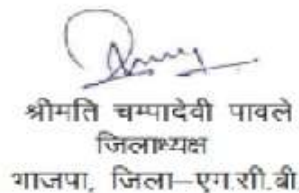 श्रीमति चम्पादेवी पावले
जिलाध्यक्ष
भाजपा, जिला–एम.सी.बी